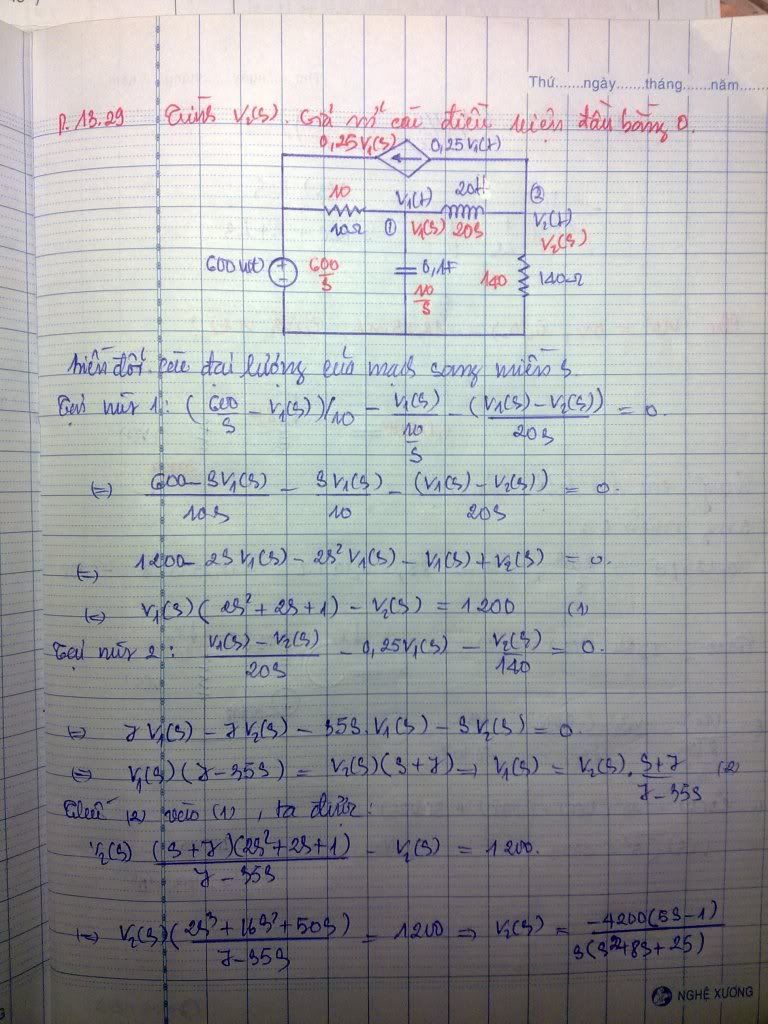 Thứ.......ngày.......tháng.......năm.......
P.13.29 V₂(s). Giả các điều kiện đầu bằng 0.
0,25V₁(s) 0,25V₁(t)
10 V₁(t) 20H ②
10Ω ① V₁(s) 20s V₂(t)
V₂(s)
600u(t) + 600/s 0,1F 140 140Ω
-
10/s
Biến đổi các đại lượng của mạch sang miền s.
Tại nút 1: (600/s - V₁(s))/10 - V₁(s)/(10/s) - (V₁(s) - V₂(s))/20s = 0.
(=) (600 - sV₁(s))/10s - sV₁(s)/10 - (V₁(s) - V₂(s))/20s = 0.
(=) 1200 - 2sV₁(s) - 2s²V₁(s) - V₁(s) + V₂(s) = 0.
(=) V₁(s)(2s² + 2s + 1) - V₂(s) = 1200 (1)
Tại nút 2: (V₁(s) - V₂(s))/20s - 0,25V₁(s) - V₂(s)/140 = 0.
(=) 7V₁(s) - 7V₂(s) - 35s.V₁(s) - sV₂(s) = 0.
(=) V₁(s)(7 - 35s) = V₂(s)(s + 7) => V₁(s) = V₂(s).(s+7)/(7-35s) (2)
Thế (2) vào (1), ta được:
V₂(s) (s + 7)(2s² + 2s + 1)/(7 - 35s) - V₂(s) = 1200.
(=) V₂(s)((2s³ + 16s² + 50s)/(7-35s)) = 1200 => V₂(s) = -4200(5s - 1)/(s(s² + 8s + 25))
NGHỆ XƯƠNG